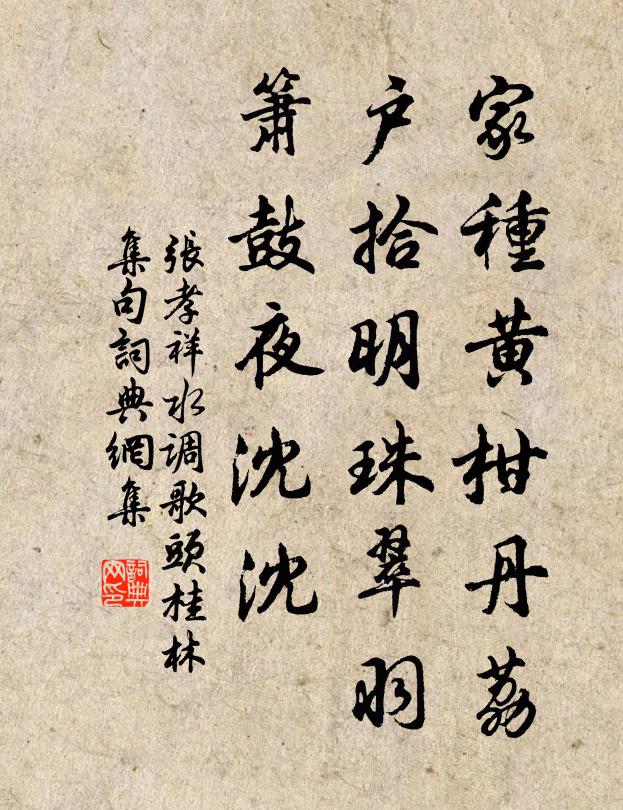 家種黄柑丹荔
户拾明珠翠羽
簫鼓夜沈沈
張孝祥水调歌頭桂林
集句詞典網集
詞典
网印